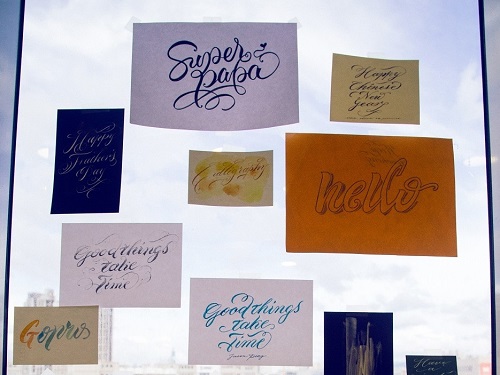 Super
papa
Happy
Chinese
New
Year
Happy
Calligraphy
hello
Good things
take
time
Good things
take
time
Have
a